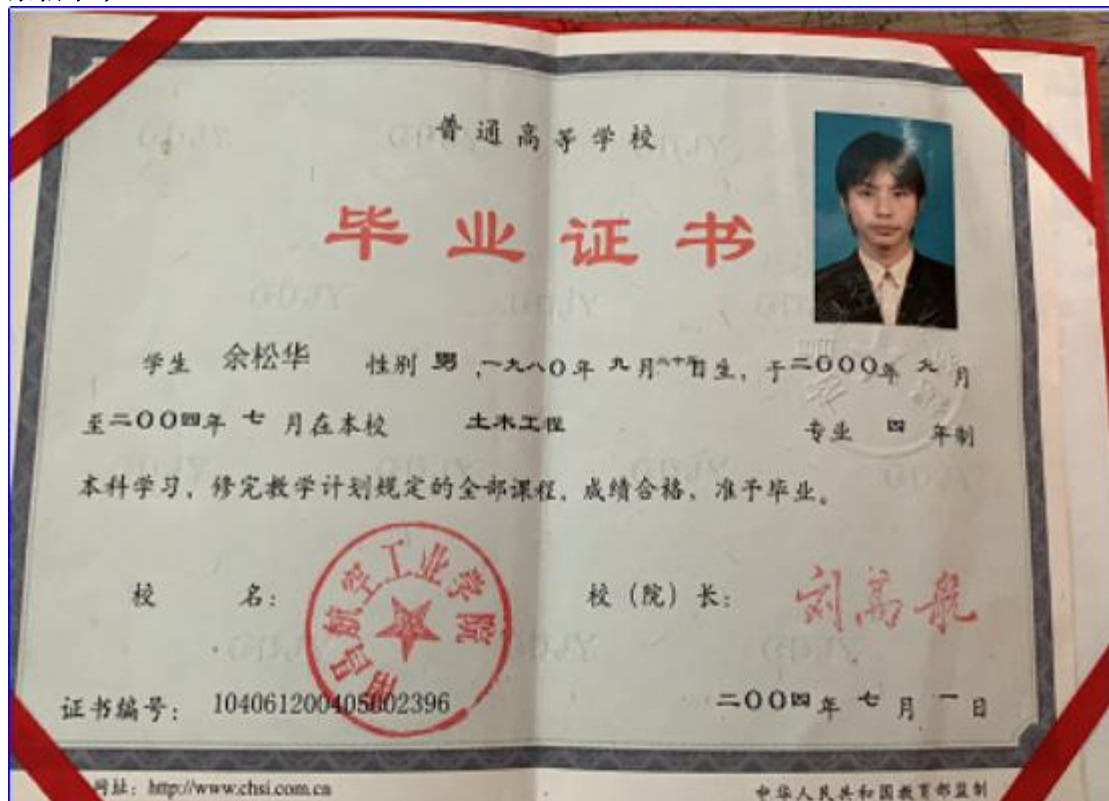 普通高等学校
毕业证书
学生 余松华 性别 男 ,一九八〇年 九月二十日生, 于二〇〇〇年 九 月
至二〇〇四年 七 月在本校 土木工程 专业 四 年制
本科学习, 修完教学计划规定的全部课程, 成绩合格, 准予毕业。
校 名: 南昌航空工业学院 校 (院) 长: 刘高航
证书编号: 104061200405002396 二〇〇四年 七 月 一 日
网址: http://www.chsi.com.cn 中华人民共和国教育部监制